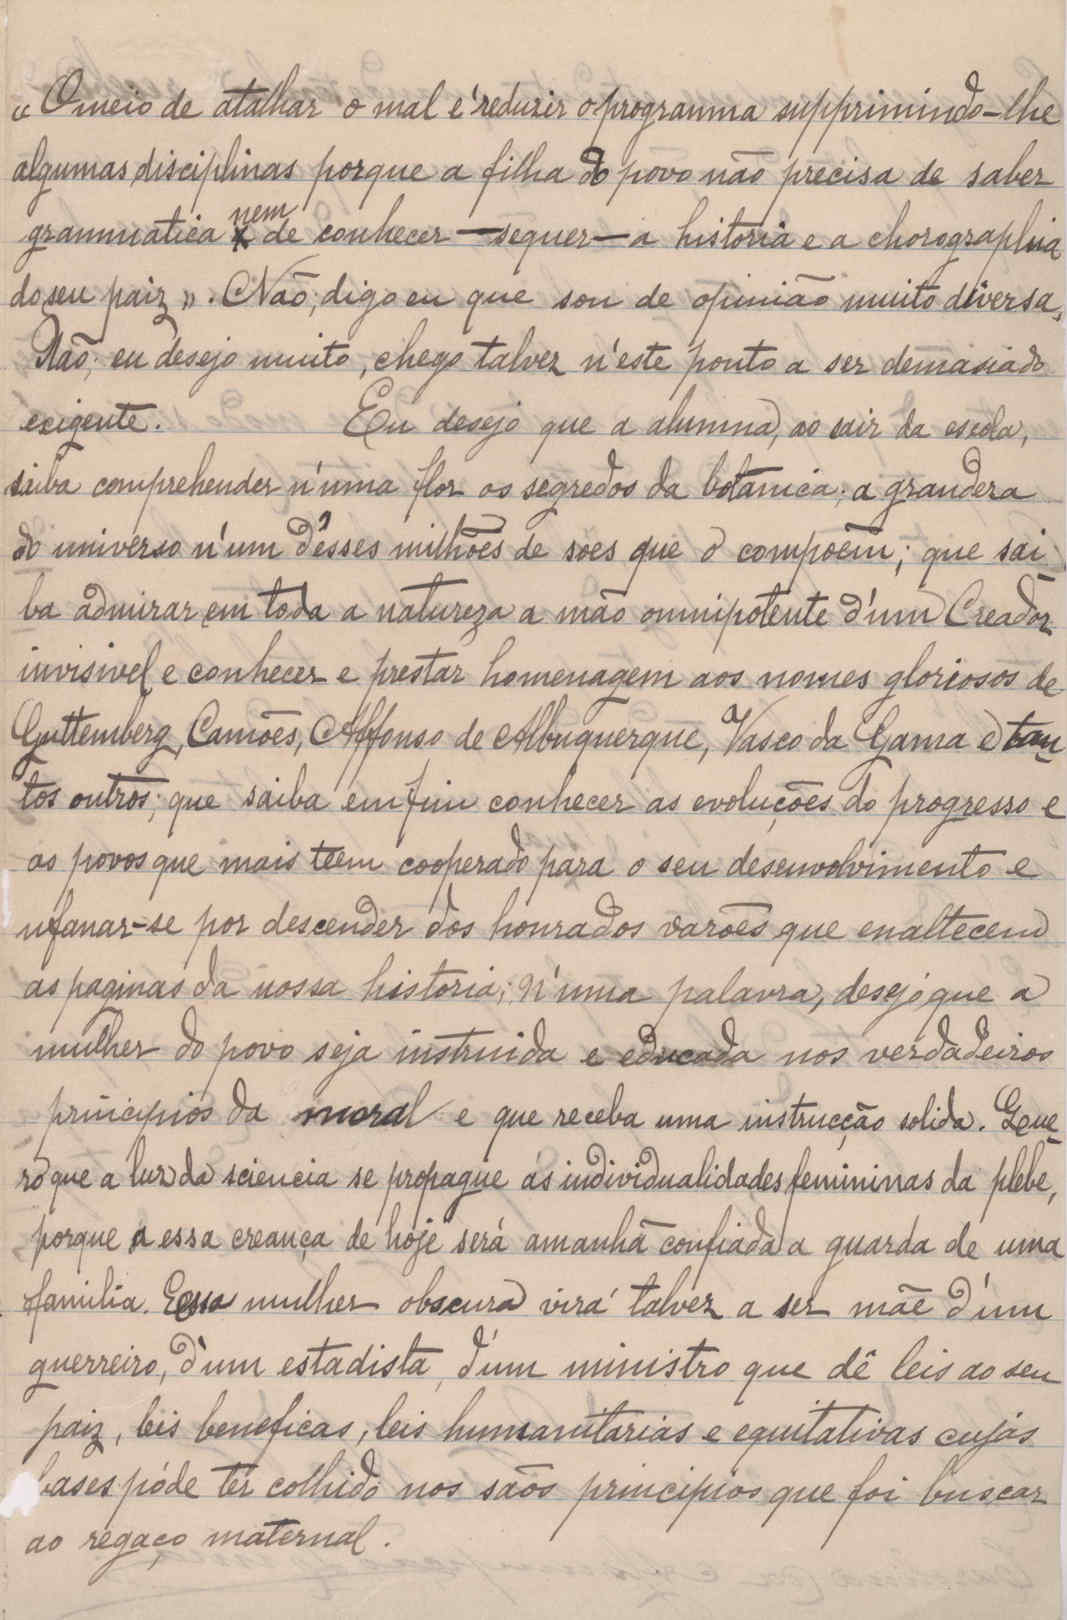 « O meio de atalhar o mal é reduzir o programma supprimindo-lhe
algumas disciplinas porque a filha do povo não precisa de saber
grammatica nem de conhecer — sequer — a historia e a chorographia
do seu paiz ». Não; digo eu que sou de opinião muito diversa.
Não; eu desejo muito, chego talvez n'este ponto a ser demasiado
exigente. Eu desejo que a alumna, ao sair da escola,
saiba comprehender n'uma flor os segredos da botanica; a grandeza
do universo n'um d'esses milhões de soes que o compõem; que sai-
ba admirar em toda a natureza a mão omnipotente d'um Creador
invisivel e conhecer e prestar homenagem aos nomes gloriosos de
Guttemberg, Camões, Affonso de Albuquerque, Vasco da Gama e tan-
tos outros; que saiba emfim conhecer as evoluções do progresso e
os povos que mais teem cooperado para o seu desenvolvimento e
ufanar-se por descender dos honrados varões que enaltecem
as paginas da nossa historia; n'uma palavra, desejo que a
mulher do povo seja instruida e educada nos verdadeiros
principios da moral e que receba uma instrucção solida. Que-
ro que a luz da sciencia se propague ás individualidades femininas da plebe,
porque a essa creança de hoje será amanhã confiada a guarda de uma
familia. Essa mulher obscura virá talvez a ser mãe d'um
guerreiro, d'um estadista, d'um ministro que dê leis ao seu
paiz, leis beneficas, leis humanitarias e equitativas cujas
bases póde ter colhido nos sãos principios que foi buscar
ao regaço maternal.